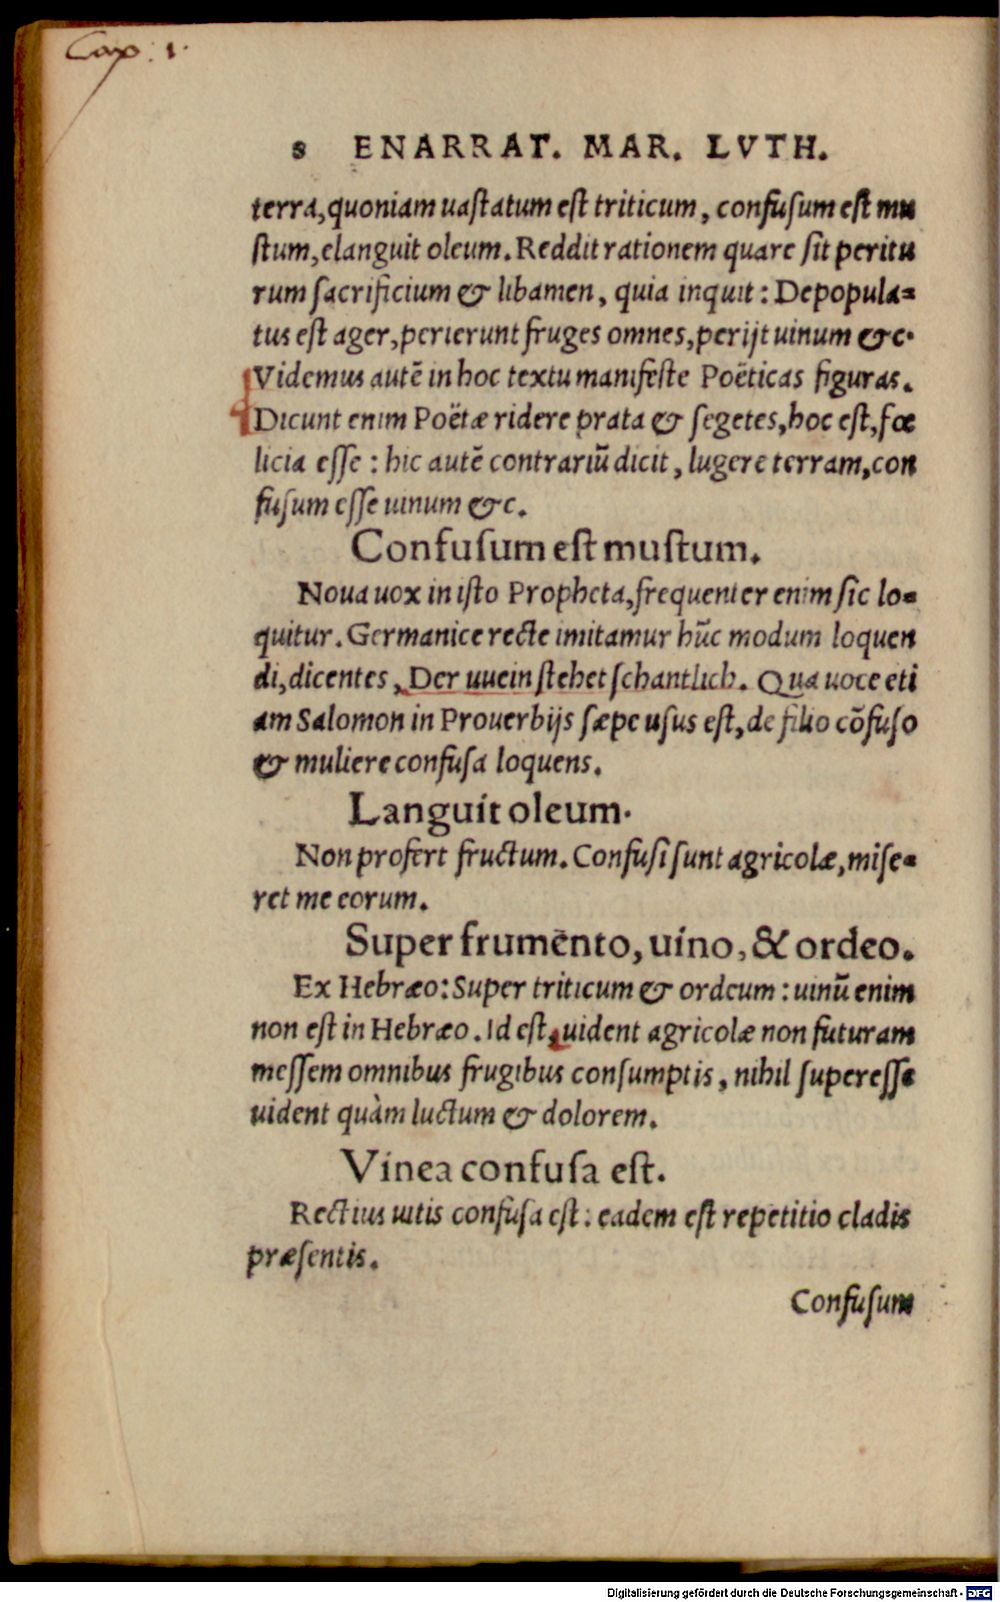 Cap: 1.
8 ENARRAT. MAR. LVTH.
terra, quoniam uastatum est triticum, confusum est mu
stum, elanguit oleum. Reddit rationem quare sit peritu
rum sacrificium & libamen, quia inquit: Depopula=
tus est ager, perierunt fruges omnes, perijt uinum &c.
Videmus autē in hoc textu manifeste Poëticas figuras.
Dicunt enim Poëtæ ridere prata & segetes, hoc est, fœ
licia esse: hic autē contrariū dicit, lugere terram, con
fusum esse uinum &c.
Confusum est mustum.
Noua uox in isto Propheta, frequenter enim sic lo=
quitur. Germanice recte imitamur hūc modum loquen
di, dicentes, Der uuein stehet schantlich. Qua uoce eti
am Salomon in Prouerbijs sæpe usus est, de filio cōfuso
& muliere confusa loquens.
Languit oleum.
Non profert fructum. Confusi sunt agricolæ, mise=
ret me eorum.
Super frumēnto, uino, & ordeo.
Ex Hebræo: Super triticum & ordeum: uinū enim
non est in Hebræo. Id est, uident agricolæ non futuram
messem omnibus frugibus consumptis, nihil superesse
uident quàm luctum & dolorem.
Vinea confusa est.
Rectius uitis confusa est: eadem est repetitio cladis
præsentis.
Confusum
Digitalisierung gefördert durch die Deutsche Forschungsgemeinschaft - DFG